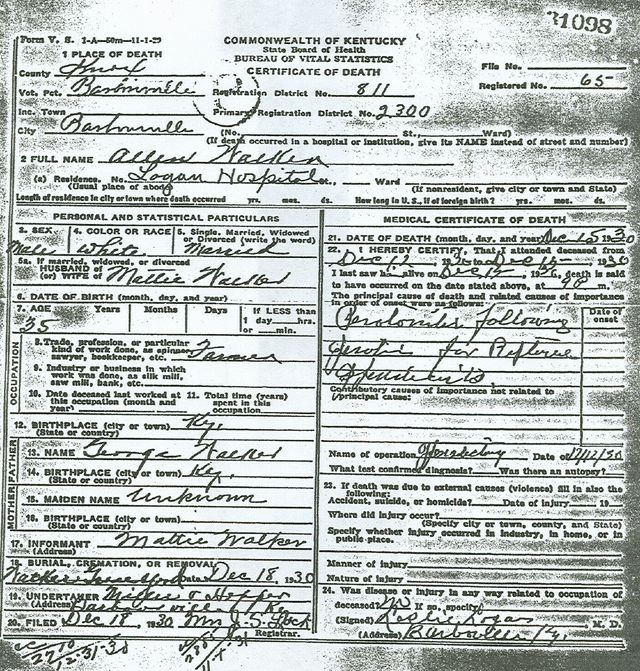 31098
Form V. S. 1-A—50m—11-1-29
COMMONWEALTH OF KENTUCKY
State Board of Health
BUREAU OF VITAL STATISTICS
CERTIFICATE OF DEATH
1 PLACE OF DEATH
County Knox
File No.
Registered No. 65
Vot. Pct. Barbourville Registration District No. 811
Inc. Town Primary Registration District No. 2300
City Barbourville (No. St., Ward)
(If death occurred in a hospital or institution, give its NAME instead of street and number)
2 FULL NAME Allen Walker
(a) Residence. No. Logan Hospital St., Ward
(Usual place of abode) (If nonresident, give city or town and State)
Length of residence in city or town where death occurred yrs. mos. ds. How long in U. S., if of foreign birth? yrs. mos. ds.
PERSONAL AND STATISTICAL PARTICULARS
3. SEX 4. COLOR OR RACE 5. Single, Married, Widowed or Divorced (write the word)
Male White Married
5a. If married, widowed, or divorced
HUSBAND of
(or) WIFE of Mattie Walker
6. DATE OF BIRTH (month, day, and year)
7. AGE Years Months Days If LESS than 1 day hrs. or min.
35
OCCUPATION
8. Trade, profession, or particular kind of work done, as spinner, sawyer, bookkeeper, etc. Farmer
9. Industry or business in which work was done, as silk mill, saw mill, bank, etc.
10. Date deceased last worked at this occupation (month and year)
11. Total time (years) spent in this occupation
12. BIRTHPLACE (city or town) Ky.
(State or country)
FATHER
13. NAME George Walker
14. BIRTHPLACE (city or town) Ky.
(State or country)
MOTHER
15. MAIDEN NAME Unknown
16. BIRTHPLACE (city or town)
(State or country)
17. INFORMANT Mattie Walker
(Address)
18. BURIAL, CREMATION, OR REMOVAL
Walker Date Dec 18, 1930
19. UNDERTAKER Hopper
(Address) Barbourville, Ky.
20. FILED Dec 18 1930 Mrs
Registrar.
12-31-30
MEDICAL CERTIFICATE OF DEATH
21. DATE OF DEATH (month, day, and year) Dec 15 1930
22. I HEREBY CERTIFY, That I attended deceased from
Dec 12 1930 to Dec 15 1930
I last saw h alive on Dec 1930, death is said
to have occurred on the date stated above, at
The principal cause of death and related causes of importance
in order of onset were as follows:
Date of onset
Peritonitis following
for
Appendicitis
Contributory causes of importance not related to principal cause:
Name of operation Date of 12/12/30
What test confirmed diagnosis? Was there an autopsy?
23. If death was due to external causes (violence) fill in also the following:
Accident, suicide, or homicide? Date of injury 19
Where did injury occur?
(Specify city or town, county, and State)
Specify whether injury occurred in industry, in home, or in public place.
Manner of injury
Nature of injury
24. Was disease or injury in any way related to occupation of
deceased? No If so, specify
(Signed) Leslie Logan, M. D.
(Address) Barbourville, Ky.